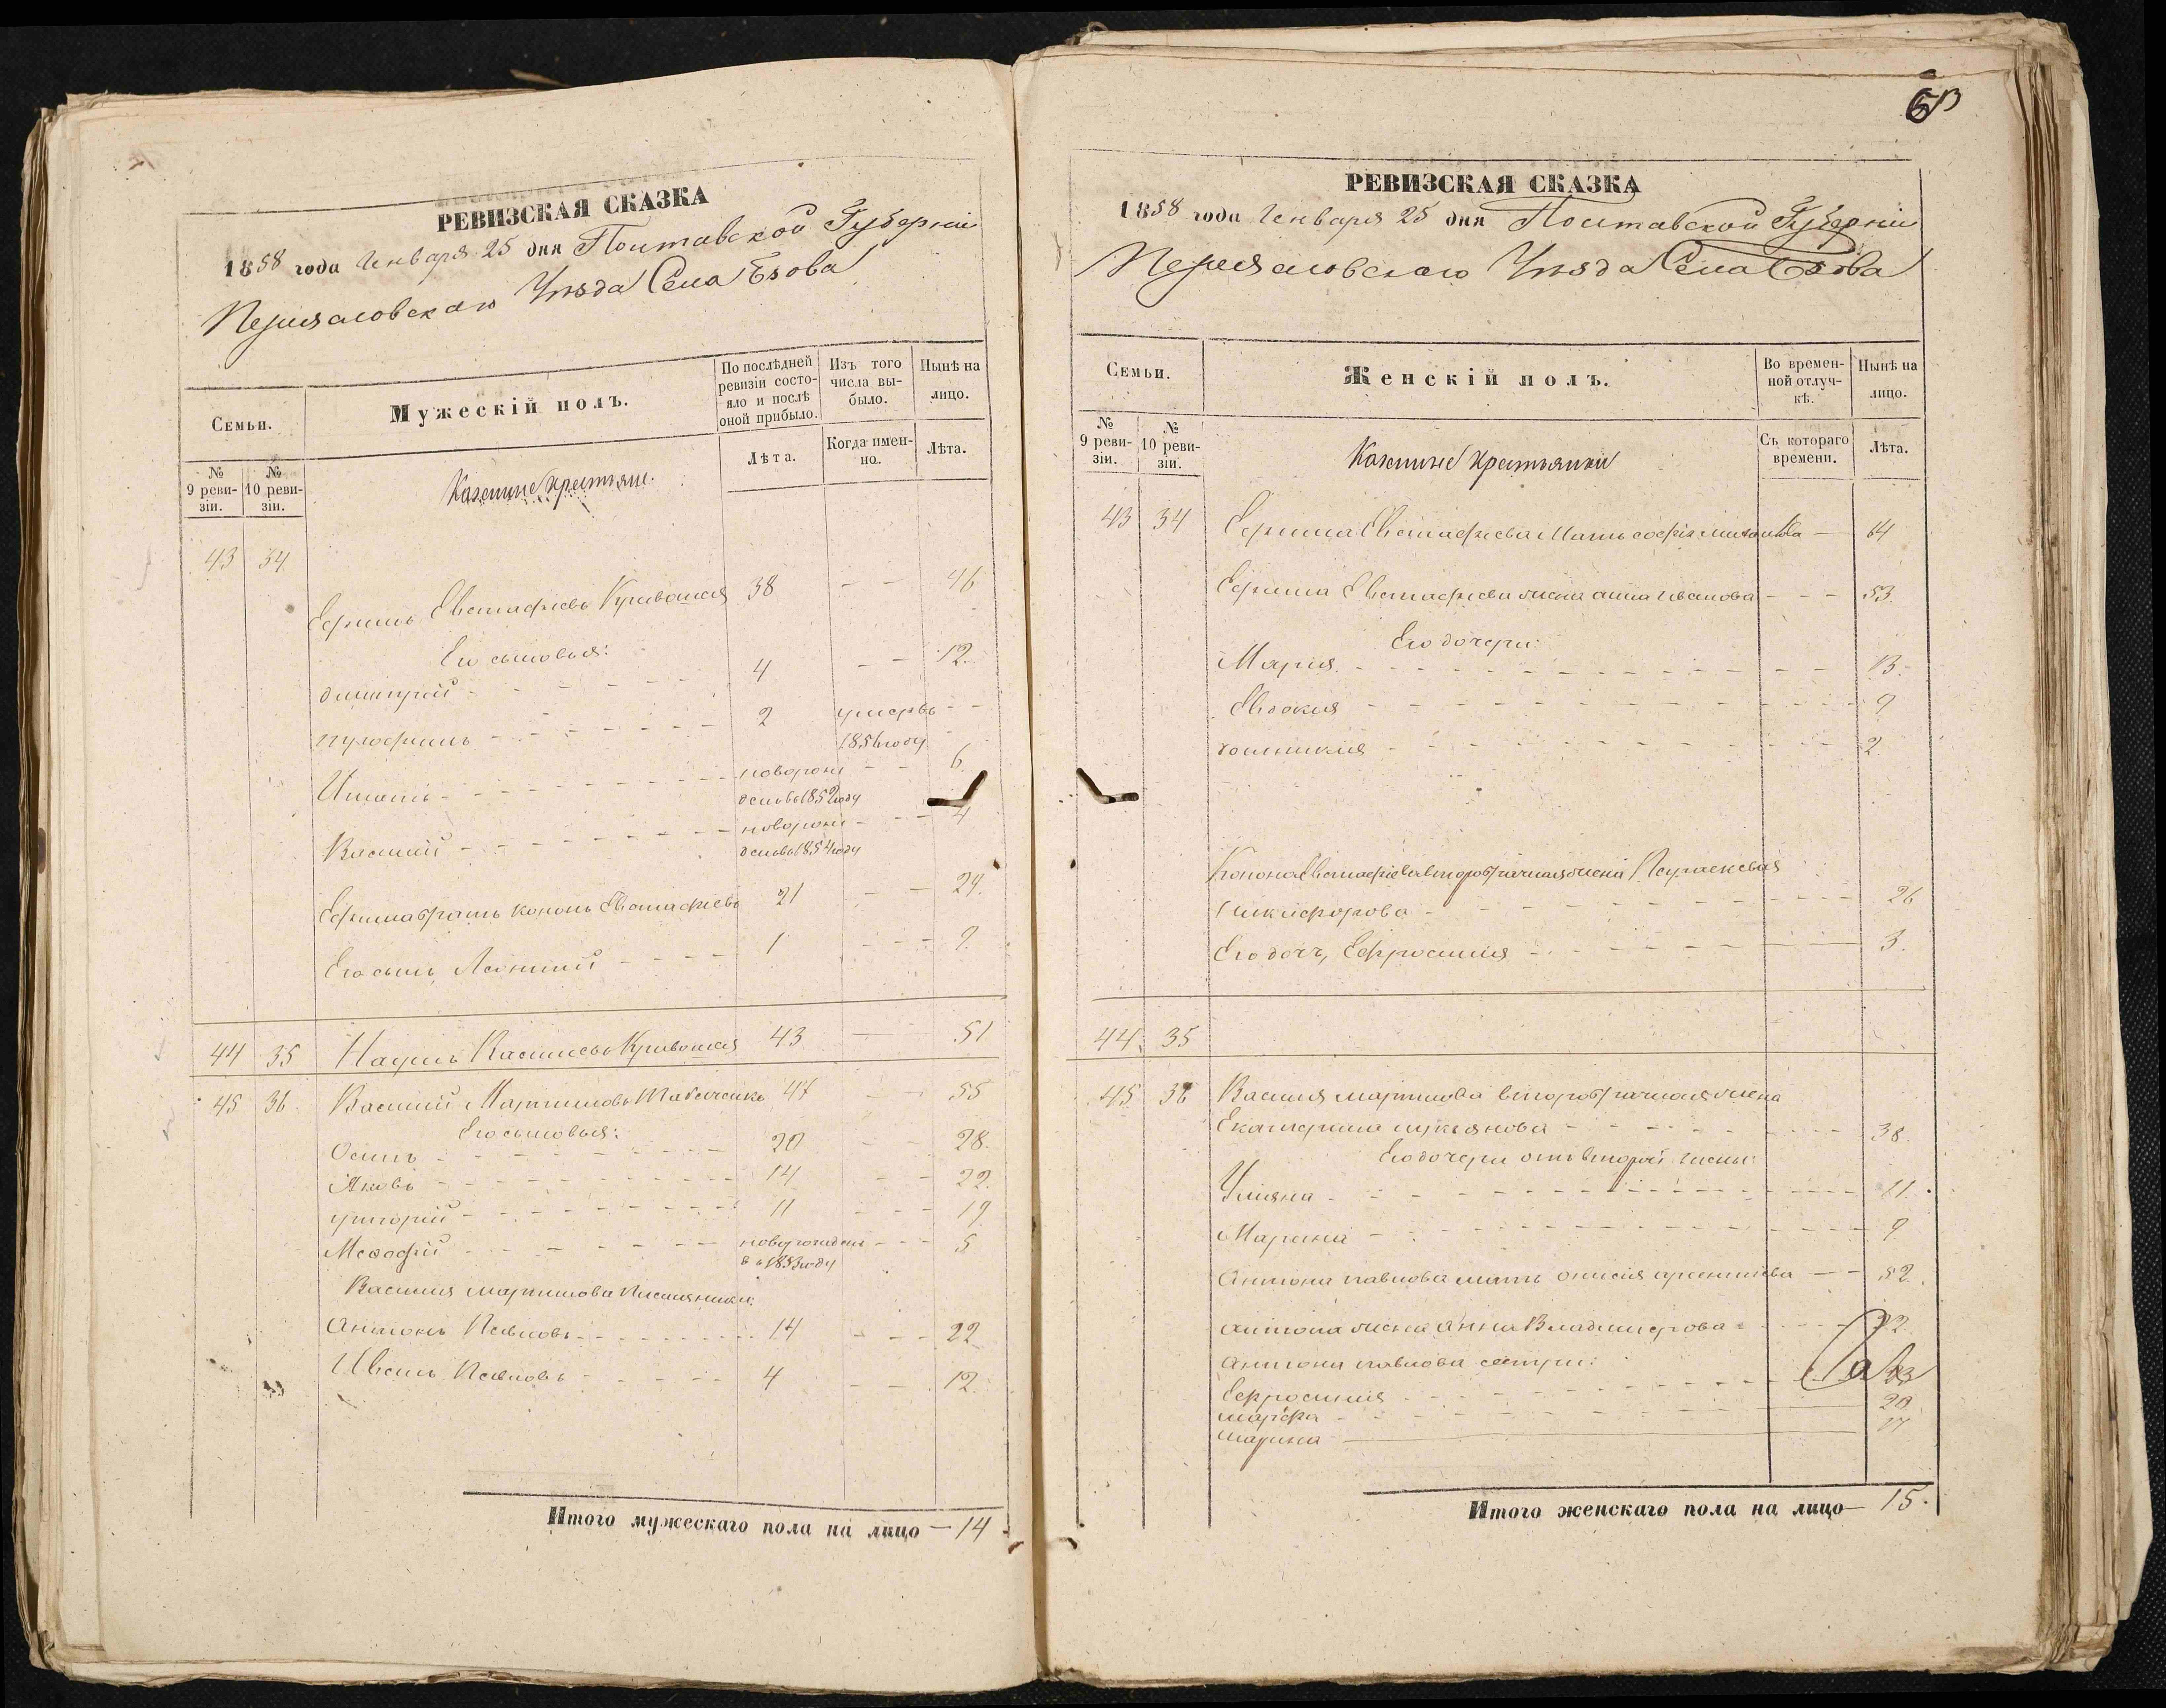 РЕВИЗСКАЯ СКАЗКА
1858 года Генваря 25 дня Полтавской Губерніи
Переяславскаго Уѣзда Села Ёзова
Семьи.
Мужескій полъ.
По послѣдней ревизіи состояло и послѣ оной прибыло.
Изъ того числа выбыло.
Нынѣ на лицо.
№ 9 ревизіи.
№ 10 ревизіи.
Казенные крестьяне.
Лѣта.
Когда именно.
Лѣта.
43 34
Ефимъ Евстафіевъ Кривошея 38 - - 46
Его сыновья:
Димитрій - - - - 4 - - 12.
Трофимъ - - - - 2 умеръ - -
1856 году
Игнатъ - - - - новорож - - 6
денъ въ 1852 году
Василій - - - - новорож - - 4
денъ въ 1854 году
Ефима братъ Кононъ Евстафіевъ 21 - - 29.
Его сынъ, Леонтій - - - - 1 - - - 9.
44 35 Наумъ Васильевъ Кривошея 43 — 51
45 36. Василій Мартиновъ 47 — 55
Его сыновья:
Осипъ - - - - 20 - - 28.
Яковъ - - - - 14 - - 22.
григорій - - - - 11 - - - 19
Меѳодій - - - - новорожден - - - 5
въ 1853 году
Василія Мартинова племянники:
Антонъ Павловъ - - - - 14 - - - 22
Иванъ Павловъ - - - - 4 - - - 12.
Итого мужескаго пола на лицо — 14.
РЕВИЗСКАЯ СКАЗКА
1858 года Генваря 25 дня Полтавской Губерніи
Переяславскаго Уѣзда Села Ёзова
Семьи.
Женскій полъ.
Во временной отлучкѣ.
Нынѣ на лицо.
№ 9 ревизіи.
№ 10 ревизіи.
Казенные крестьянки
Съ котораго времени.
Лѣта.
43 34 Ефима Евстафіева Мать софія — 64
Ефима Евстафіева жена анна иванова - - - 53.
Его дочери:
Марія. - - - - 13.
Евдокия - - - - 9
- - - - 2
Конона Евстафіева второбрачная жена
Никифорова - - - - 26
Его дочъ, Ефросинія - - - - 3.
44. 35
45 36 Василия мартинова второбрачная жена
Екатерина лукьянова - - - - 38.
Его дочери отъ второй жены:
Уліяна - - - - 11.
Марина - - - - 9
Антона павлова мать — - 52.
антона жена Анна Владимерова - - - - 22.
Антона павлова сестри:
Ефросинія - - - - 23
марѳа - - - - 20
марина — 17
Итого женскаго пола на лицо — 15.